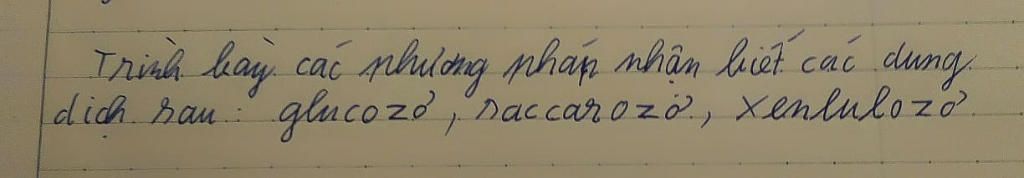 Trình bày các phương pháp nhận biết các dung
dịch sau: glucozơ, saccarozơ, xenlulozơ